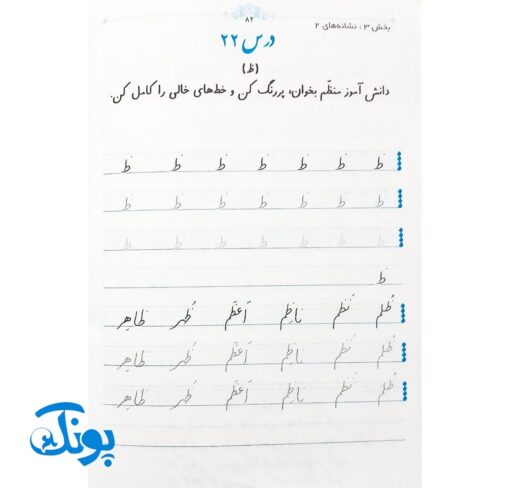 ۸۲
بخش ۳ : نشانه‌های ۲
درس ۲۲
(ظ)
دانش آموز منظّم بخوان، پررنگ کن و خط‌های خالی را کامل کن.
ظ ظ ظ ظ ظ ظ ظ
ظ ظ ظ ظ ظ ظ ظ
ظ ظ ظ ظ ظ ظ ظ
ظ
ظُلم نَظم ناظِم اَعظَم ظُهر ظاهِر
ظُلم نَظم ناظِم اَعظَم ظُهر ظاهِر
ظُلم نَظم ناظِم اَعظَم ظُهر ظاهِر
پونک